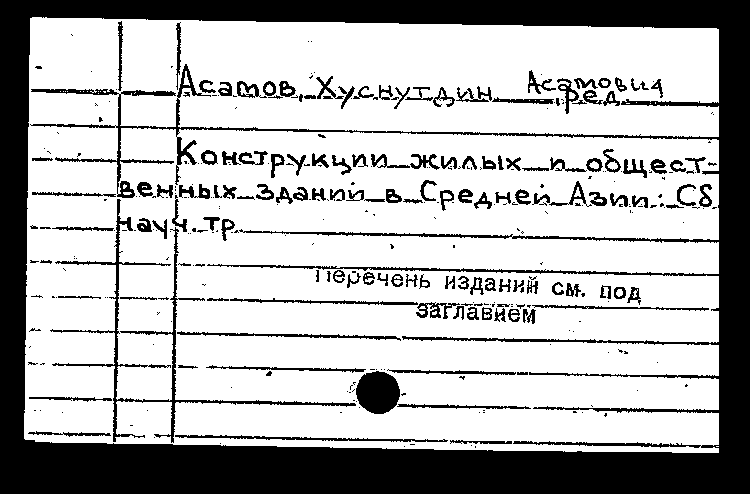 Асатов, Хуснутдин Асатович
, ред.
Конструкции жилых и общест-
венных зданий в Средней Азии: Сб
науч. тр
Перечень изданий см. под
заглавием